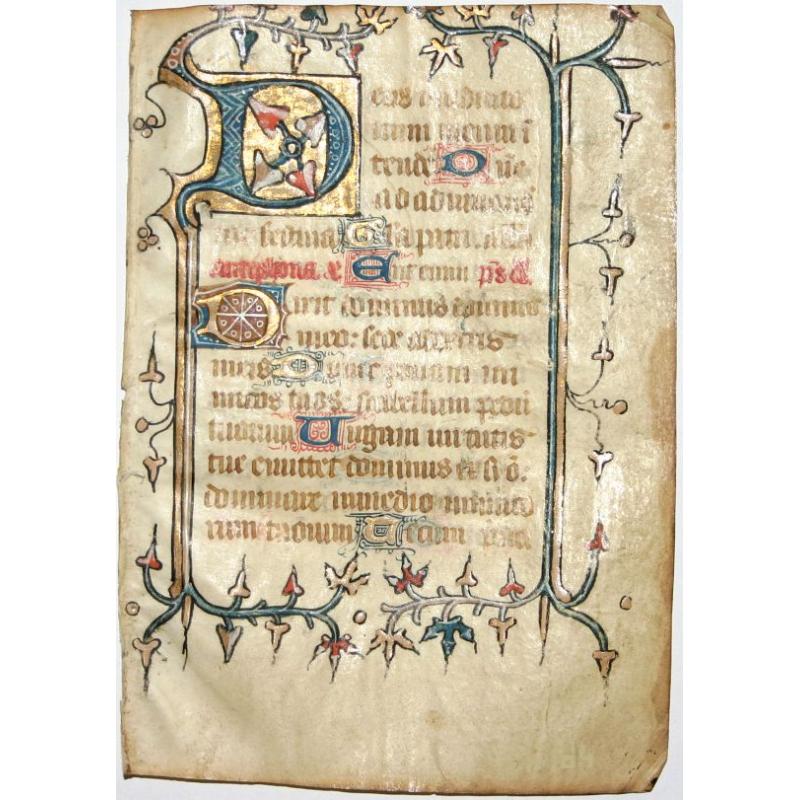 Deus in adiuto
rium meum i
tende Dne
ad adiuuand
me festina Gla patri. alla
Dixit dominus domino
meo: sede a dextris
meis Donec ponam ini
micos tuos: scabellum pedu
tuorum Uirgam uirtutis
tue emittet dominus ex sio:
dominare in medio inimico
rum tuorum Tecum prin